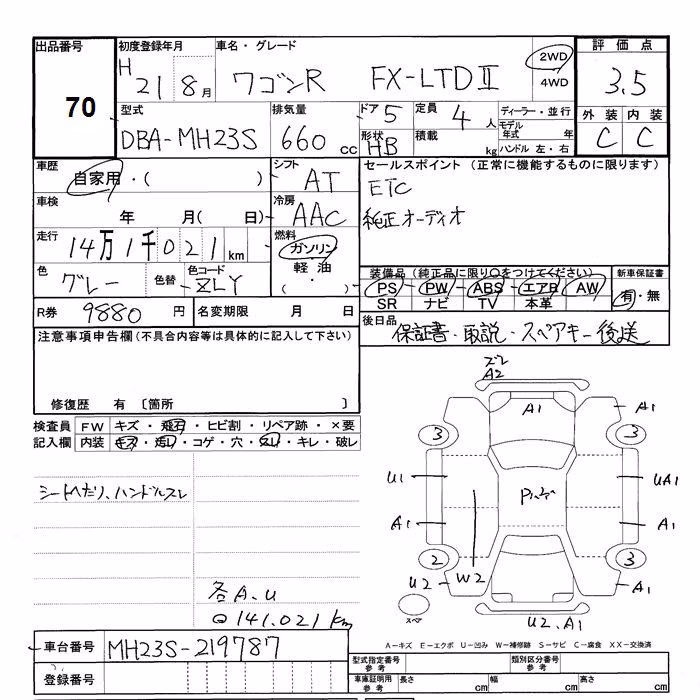 出品番号
70
初度登録年月
H 21年 8月
車名・グレード
ワゴンR FX-LTDⅡ
2WD
4WD
評価点
3.5
外装 内装
C C
型式
DBA-MH23S
排気量
660 cc
ドア 5
形状 HB
定員 4 人
積載 kg
ディーラー・並行
モデル年式 年
ハンドル 左・右
車歴
自家用・( )
車検
年 月( 日)
走行
14万1千021 km
色
グレー
色替
色コード
ZLY
シフト
AT
冷房
AAC
燃料
ガソリン
軽油
・
( )
セールスポイント (正常に機能するものに限ります)
ETC
純正オーディオ
装備品(純正品に限り○をつけてください)
PS・PW・ABS・エアB AW
SR ナビ TV 本革
新車保証書
有・無
後日品
保証書・取説・スペアキー後送
R券 9880 円
名変期限 月 日
注意事項申告欄(不具合内容等は具体的に記入して下さい)
修復歴 有 〔箇所 〕
検査員記入欄
FW キズ・飛石・ヒビ割・リペア跡・×要
内装 キズ・汚レ・コゲ・穴・スレ・キレ・破レ
シートへたり、ハンドルスレ
各A.U
141.021 km
車台番号 MH23S-219787
登録番号
ズレ
A2
A1
A1
3
3
U1
UA1
A1
A1
2
3
U2
W2
A1
スペア
U2.A1
A-キズ E-エクボ U-凹み W-補修跡 S-サビ C-腐食 XX-交換済
型式指定番号 参考
類別区分番号 参考
車庫証明用 参考
長さ cm
幅 cm
高さ cm